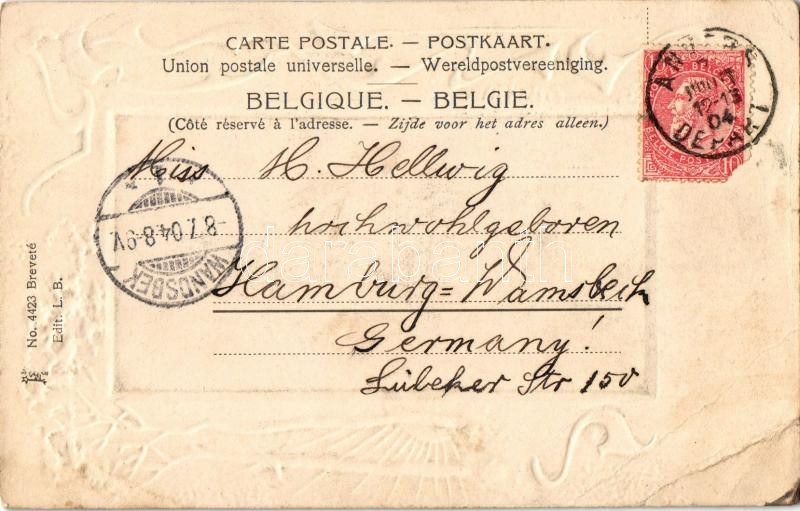 CARTE POSTALE. — POSTKAART.
Union postale universelle. — Wereldpostvereeniging.
BELGIQUE. — BELGIE.
(Côté réservé à l'adresse. — Zijde voor het adres alleen.)
Miss H. Hellwig
hochwohlgeboren
Hamburg=Wamsbeck
Germany!
Lübeker Str 150
WANDSBEK
8.7.04.8-9V.
04
DEPART
10
No. 4423 Breveté
Edit. L. B.
darabanth